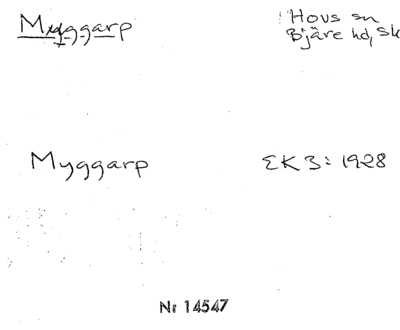 Myggarp
Hovs sn
Bjäre hd, Sk
Myggarp
EK 3: 1928
Nr 14547